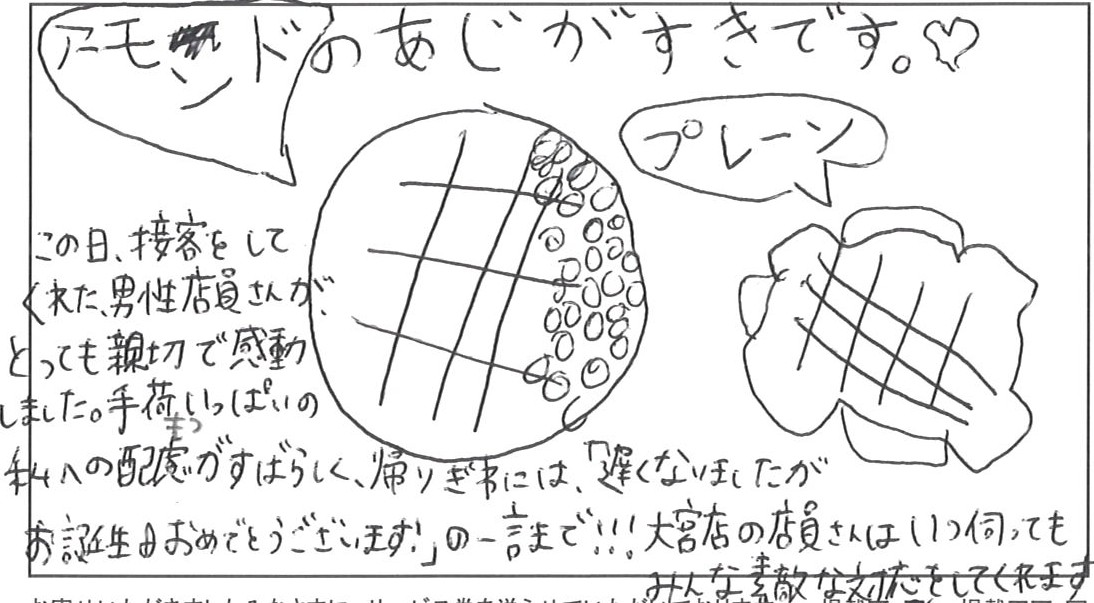 アーモンドのあじがすきです。♡
プレーン
この日、接客をして
くれた、男性店員さんが、
とっても親切で感動
しました。手荷いっぱいの
もつ
私への配慮がすばらしく、帰りぎわには、「遅くなりましたが
お誕生日おめでとうございます!」の一言まで!!!大宮店の店員さんはいつ伺っても
みんな素敵な対応をしてくれます